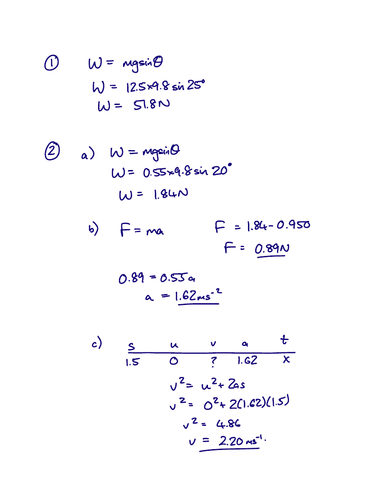 ① W = mgsinθ
W = 12.5×9.8 sin 25°
W = 51.8N
② a) W = mgsinθ
W = 0.55×9.8 sin 20°
W = 1.84N
b) F = ma F = 1.84-0.950
F = 0.89N
0.89 = 0.55a
a = 1.62ms⁻²
c) s u v a t
1.5 0 ? 1.62 x
v² = u² + 2as
v² = 0² + 2(1.62)(1.5)
v² = 4.86
v = 2.20 ms⁻¹.